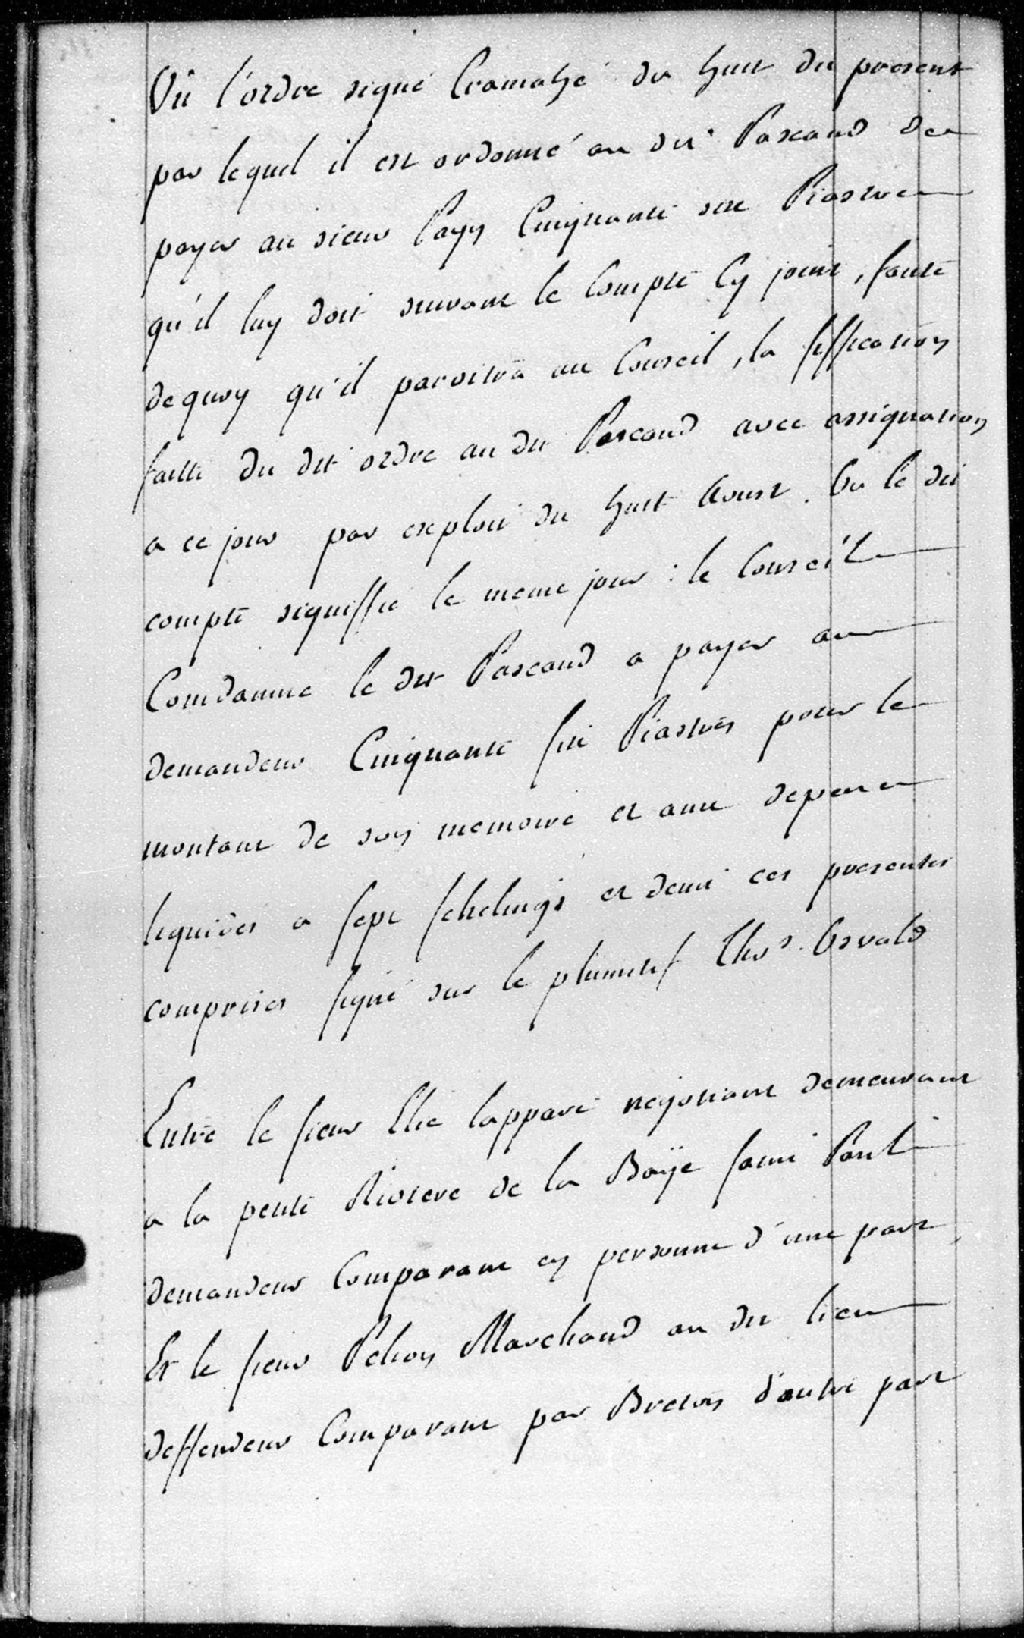 Vû l'ordre signé Cramahé du huit du present
par lequel il est ordonné au dit Pascaud de
payer au sieur Cinquante six Piastres
qu'il luy doit suivant le Compte Cy joint, faute
de quoy qu'il paroitra au Conseil, la
faitte du dit ordre au dit Pascaud avec assignation
a ce jour par exploit du huit Aoust. Vu le dit
compte signiffié le meme jour : le Conseil
Condamne le dit Pascaud a payer au
demandeur Cinquante six Piastres pour le
montant de son memoire et aux depens
liquidés a sept schelings et demi ces presentes
comprises signé sur le plumitif Thos. Osvald
Entre le sieur Elie Lapparé negotiant demeurant
a la petite Riviere de la Baÿe saint Paul
demandeur Comparant en personne d'une part,
Et le sieur Marchand au dit lieu
deffendeur Comparant par Breton d'autre part